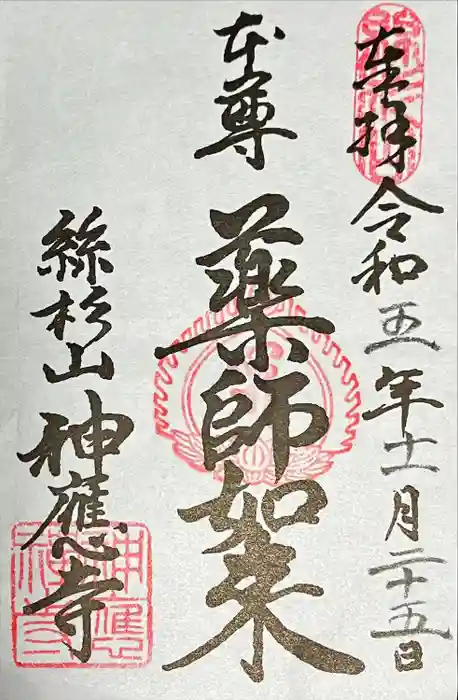 奉拝 令和五年十一月二十五日
本尊 薬師如来
絲杉山 神應寺
神應寺